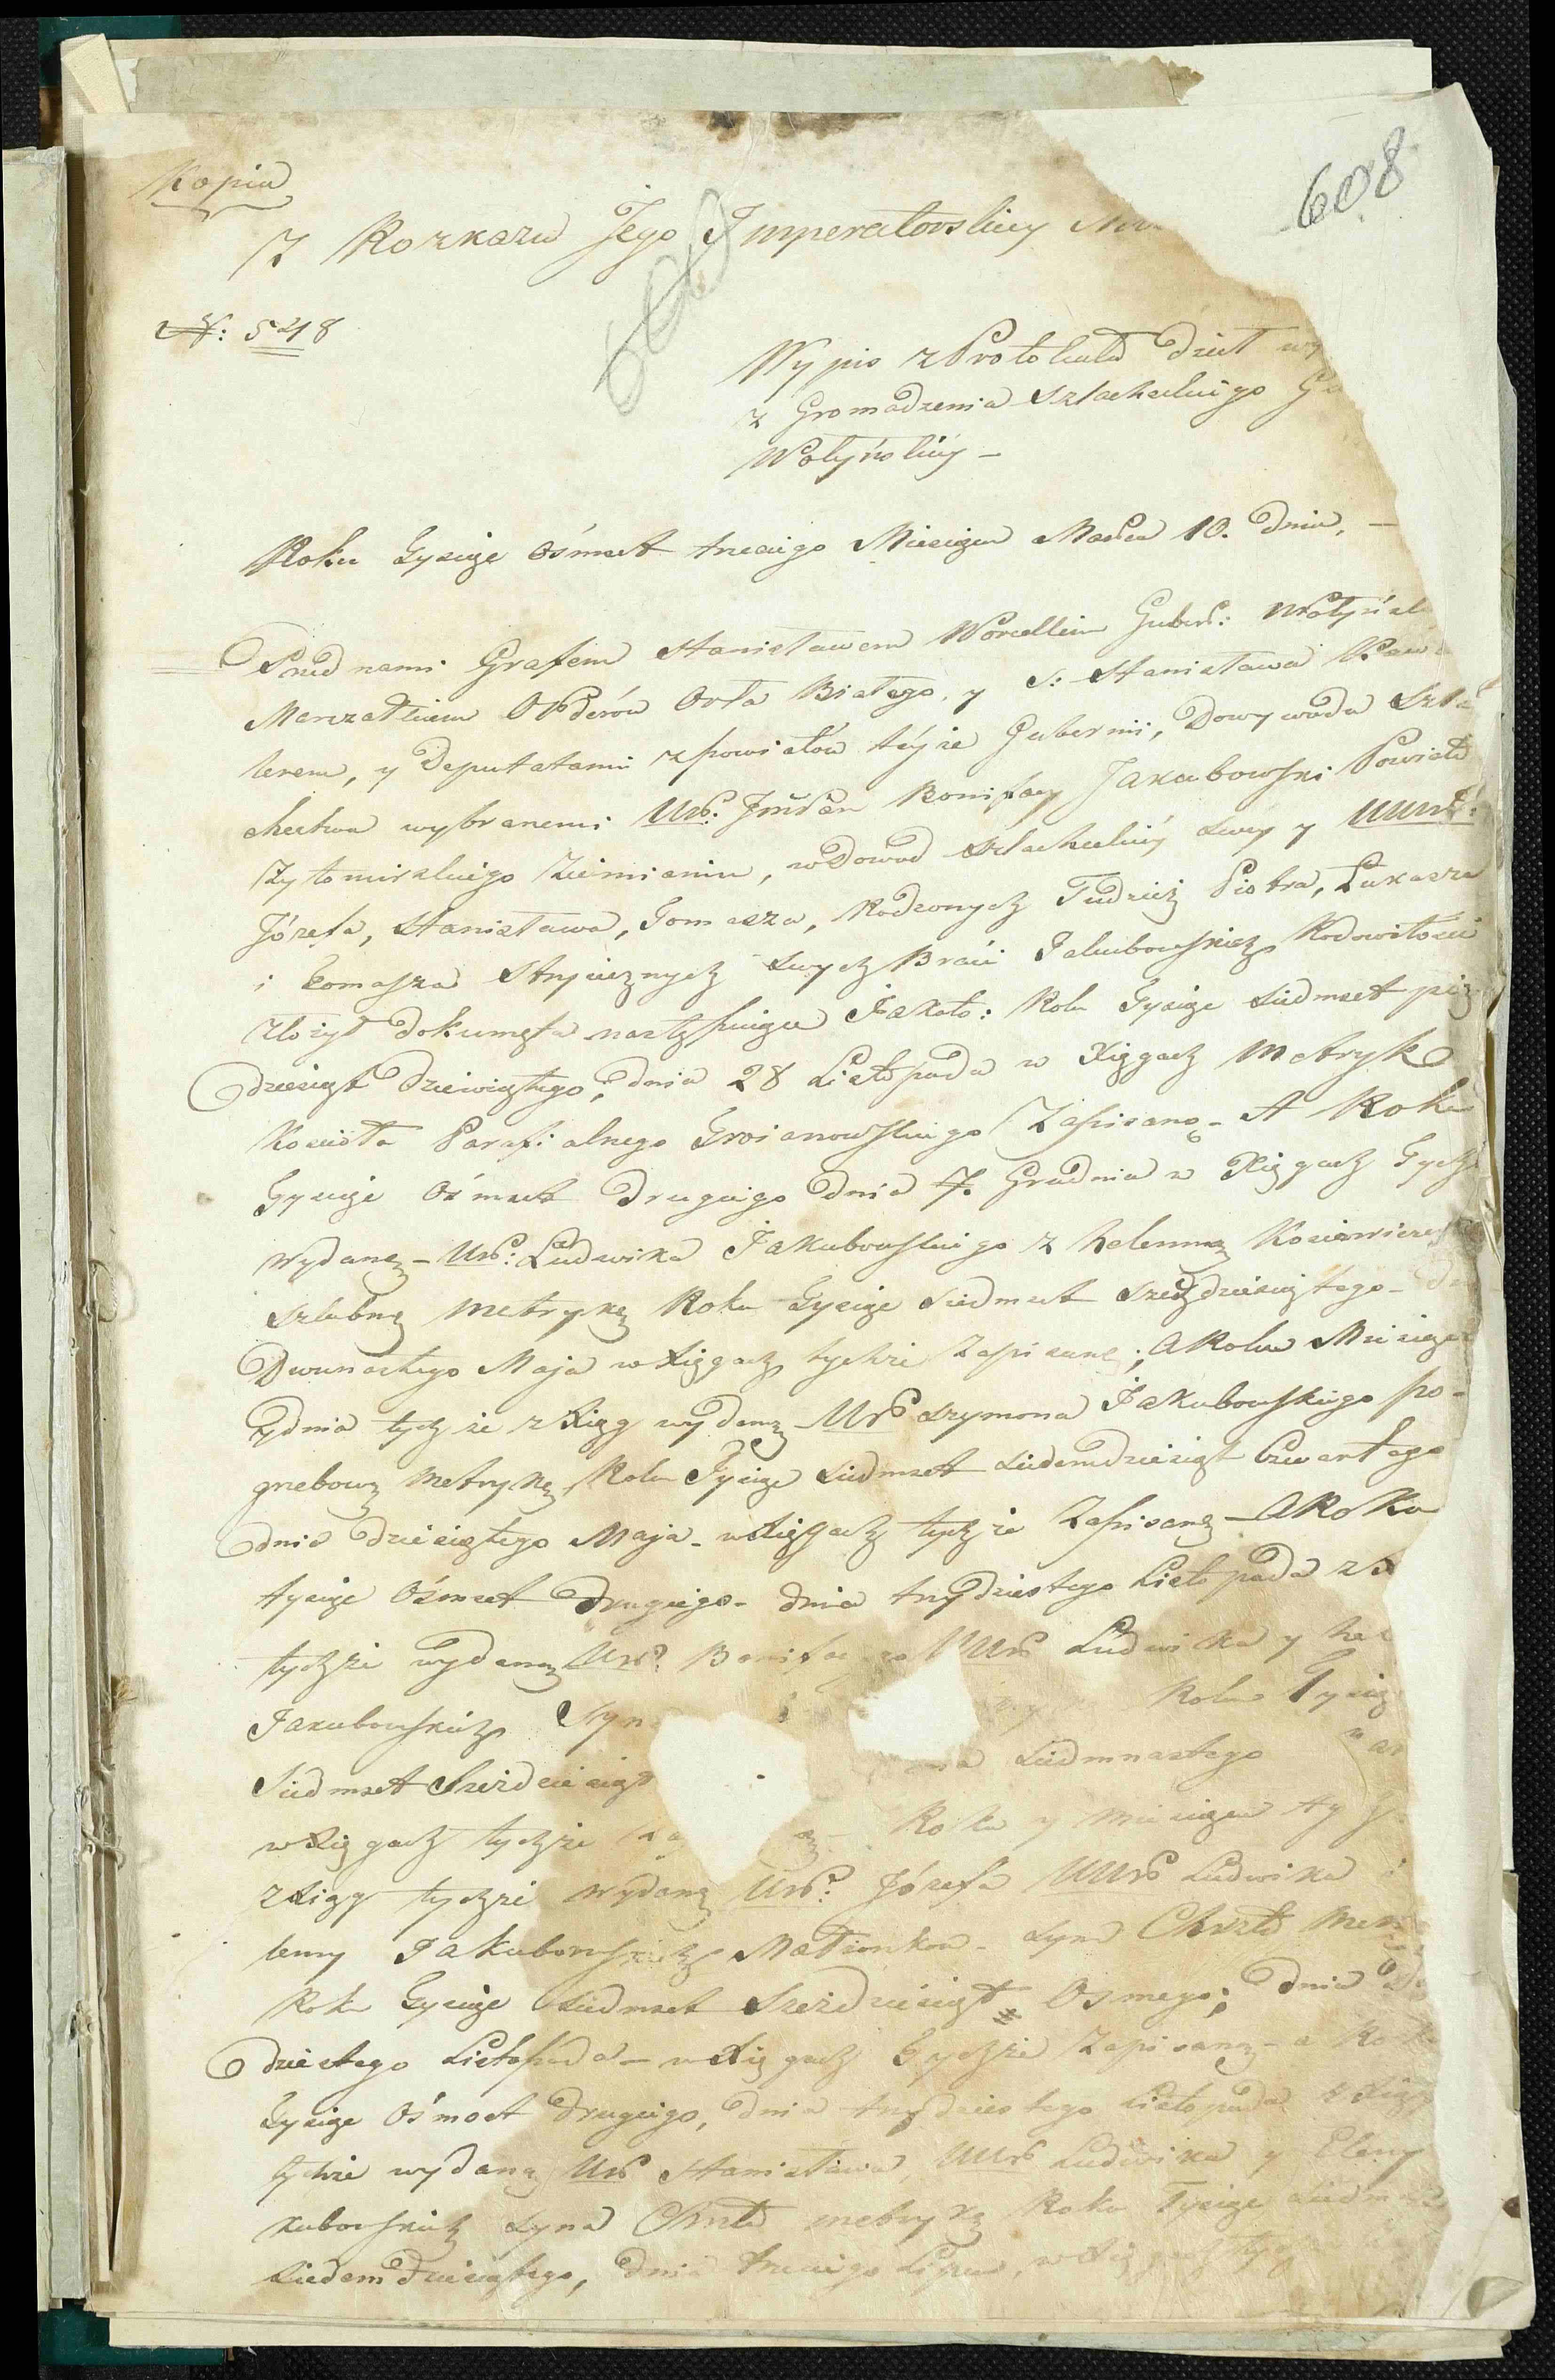 608
Kopia
Z Rozkazu Jego Imperatorskiey
N: 548
Wypis z Protokułu dzieł
z Gromadzenia Szlacheckiego
Wołyńskiey –
Roku Tysiąc Ośmset trzeciego Miesiąca Marca 10. dnia. –
Przed nami Grafem Stanisławem Worcellem Guber: Wołyńsk
Marszałkiem Orderów Orła Białego, y S: Stanisława Kawa
lerem, y Deputatami z powiatów téyże Gubernii, Dowywodu Szla
checтwa wybranemi Ur: Jmć Pan Bonifacy Jakubowski Powiatu
Żytomirskiego Ziemianin, w dowod Szlacheckiéy Swey y UUr:
Józefa, Stanisława, Tomasza, Rodzonych Tudzież Piotra, Łukasza
i Tomasza Stryiecznych Swych Braci Jakubowskich Rodowitości
złożył dokumęta następuiące Jakoto: Roku Tysiąc Siedmset pię
dziesiąt dziewiątego, dnia 28 Listopada w Xięgach Metryk
Kościoła Parafialnego Zapisaną – A Roku
Tysiąc Ośmset Drugiego dnia 7. Grudnia z Xiąg
wydaną – Ur: Ludwika Jakubowskiego z Helenną
Szlubną Metrykę Roku Tysiąc Siedmset Sześćdziesiątego –
Dwunastego Maja w Xięgach tychże Zapisaną; A Roku Miesiąca
y dnia tychże z Xiąg wydaną Ur Szymona Jakubowskiego po-
grzebową Metrykę, Roku Tysiąc Siedmset Siedemdziesiąt Czwartego
dnia dziesiątego Maja – w Xięgach tychże Zapisaną – A Roku
tysiąc Ośmset Drugiego – dnia trzydziestego Listopada z X
tychże wydaną Ur: Bonifacego UUr Ludwika y He
Jakubowskich Syn Roku Tysiąc
Siedmset Sześćdziesiąt Siedmnastego
w Xięgach tychże Roku y Miesiąca ty
z Xiąg tychże wydaną Ur: Józefa UUr Ludwika i
leny Jakubowskich Małżonków – Syna Chrztu Met
Roku Tysiąc Siedmset Sześćdziesiąt Osmego, dnia
dziestego Listopada – w Xięgach Tychże Zapisaną – a Roku
Tysiąc Ośmset Drugiego, dnia trzydziestego Listopada z Xiąg
tychże wydaną Ur Stanisława, UUr Ludwika y Eleny
kubowskich Syna Chrztu metrykę Roku Tysiąc Siedmset
Siedemdziesiątego, dnia trzeciego Lipca, w Xięgach tychże